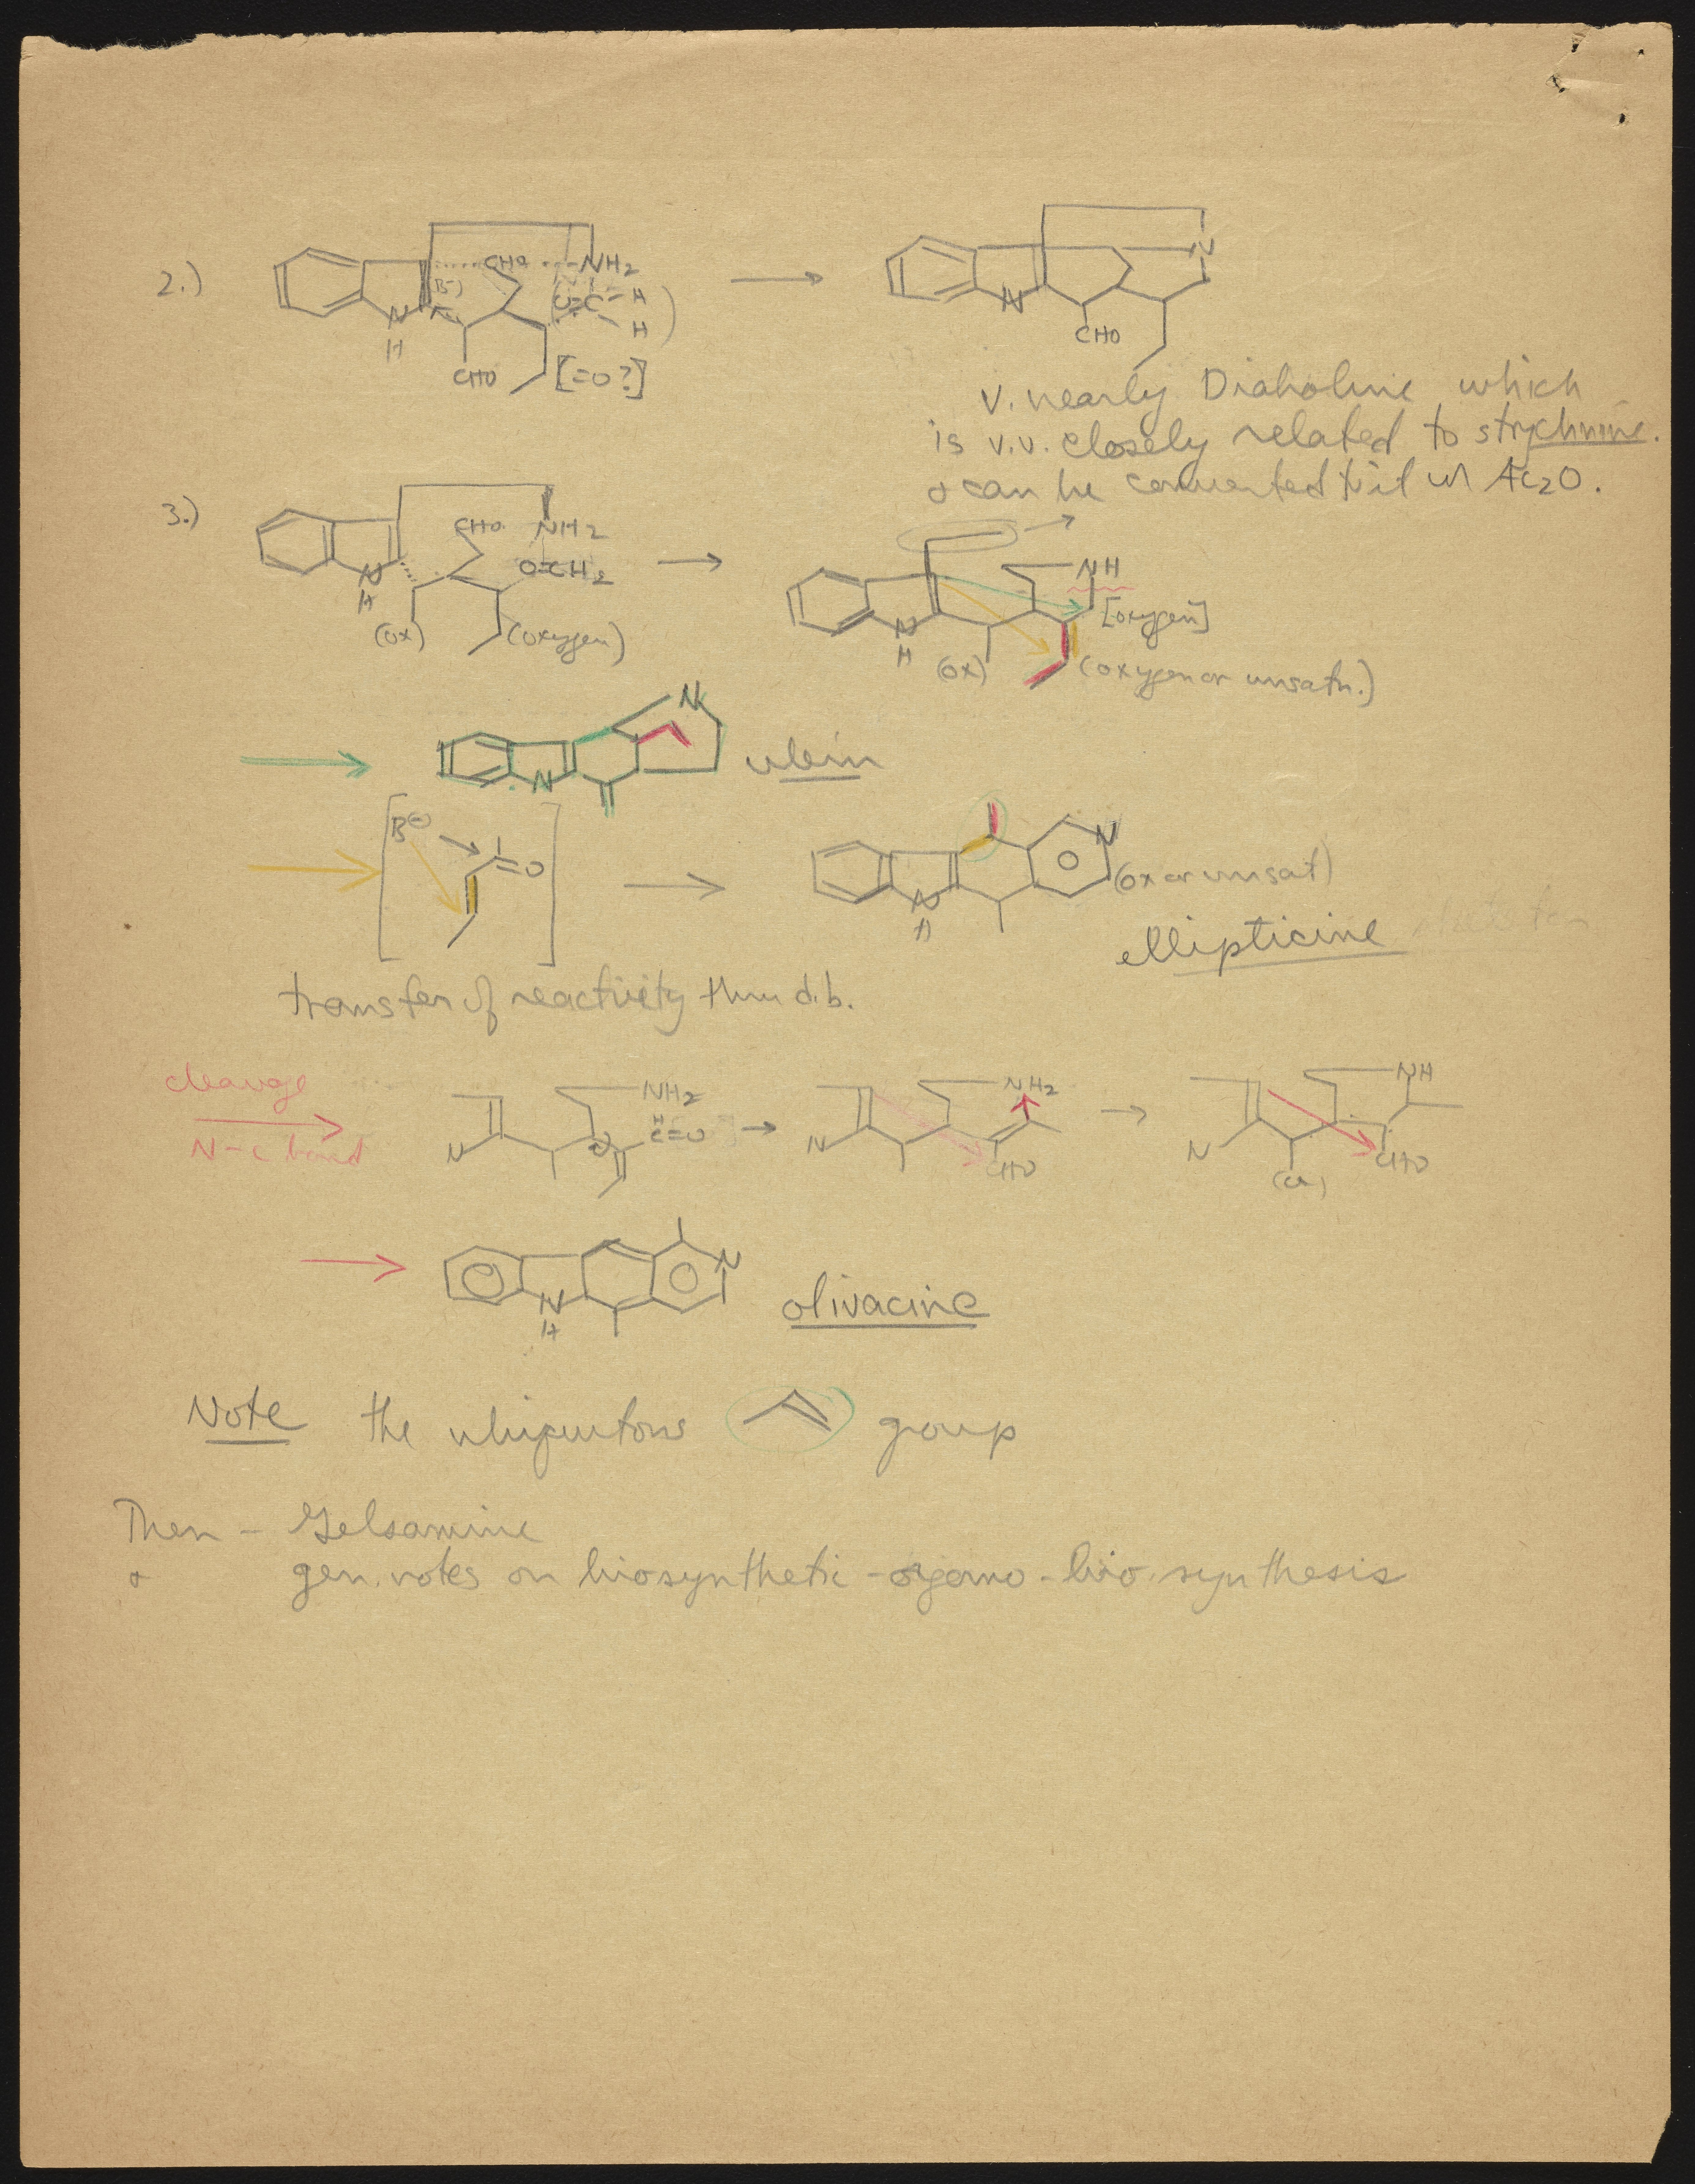 2.)
CHO NH2
(B-) O=C H
N H H
CHO [=O?]
N
N
CHO
v. nearly Diaboline which
is v.v. closely related to strychnine.
& can be converted to it w/ Ac2O.
3.)
CHO NH2
O=CH2
N
H
(ox) (oxygen)
NH
[oxygen]
N
H (ox) (oxygen or unsatn.)
N
N
ulein
B⊖
=O
N
N
H
(ox or unsat)
ellipticine
transfer of reactivity thru d.b.
cleavage
N-C bond
NH2
H
C=O
N
NH2
N
CHO
NH
N
CHO
(ox)
N
N
H
olivacine
Note the ubiquitous group
Then - Gelsamine
& gen. notes on biosynthetic - organo - bio. synthesis